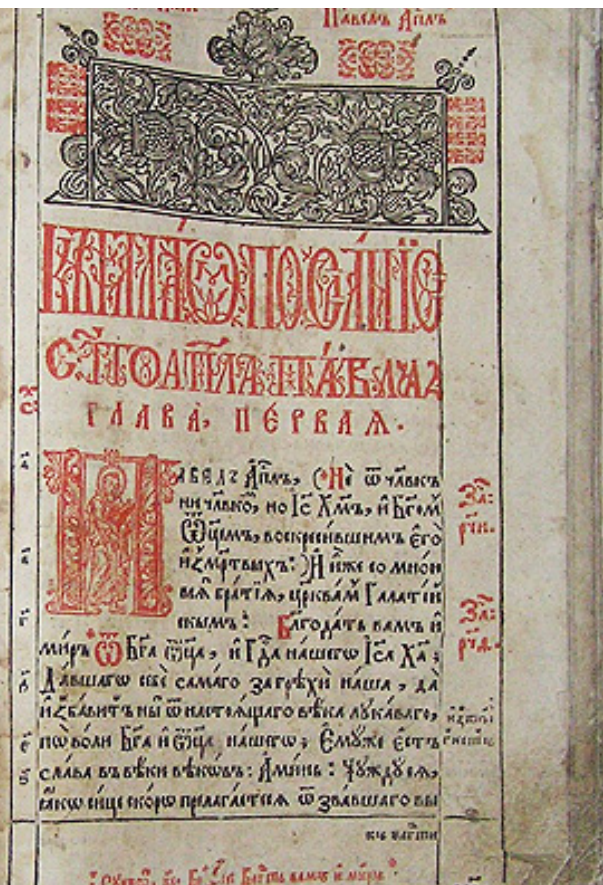 Павелъ Апⷭ҇лъ
КЪ ГАЛАТѠⷨ ПОСЛА́НІЕ
СТ҃ОГѠ АПⷭ҇ЛА ПА́ВЛА
ГЛАВА̀, ПЕ́РВАЯ.
ПАВЕЛЪ А҆пⷭ҇лъ, (Не ѿ чл҃вкъ
ни чл҃вкоⷨ, но І҆с Хⷭ҇мъ, и҆ Бг҃омⸯ
Ѻц҃емъ, воскреси́вшимъ є҆го̀
и҆зⸯ мр҃твыхъ:) И҆ и҆́же со мно́ю
всѧ̑ бра́тїѧ, цр҃квамⸯ Галаті́й
скымъ: Бл҃года́ть вамъ и҆
ми́ръ ѿ Бг҃а Ѻц҃а, и҆ Гдⷭ҇а на́шегѡ І҆с҃а Ха҃:
Да́вшагѡ себѐ само́го за грѣхѝ на́ша, да
и҆зба́витъ ны̀ ѿ настоѧ́щаго вѣ́ка лука́ваго,
по во́ли Бг҃а и҆ Ѻц҃а на́шегѡ: Є҆му́же є҆сть
сла́ва въ вѣ́ки вѣкѡ́въ: А҆ми́нь: Чужду́сѧ,
ꙗ҆́кѡ си́це ско́рѡ прелага́етесѧ ѿ зва́вшаго вы
За҃:
За҃: